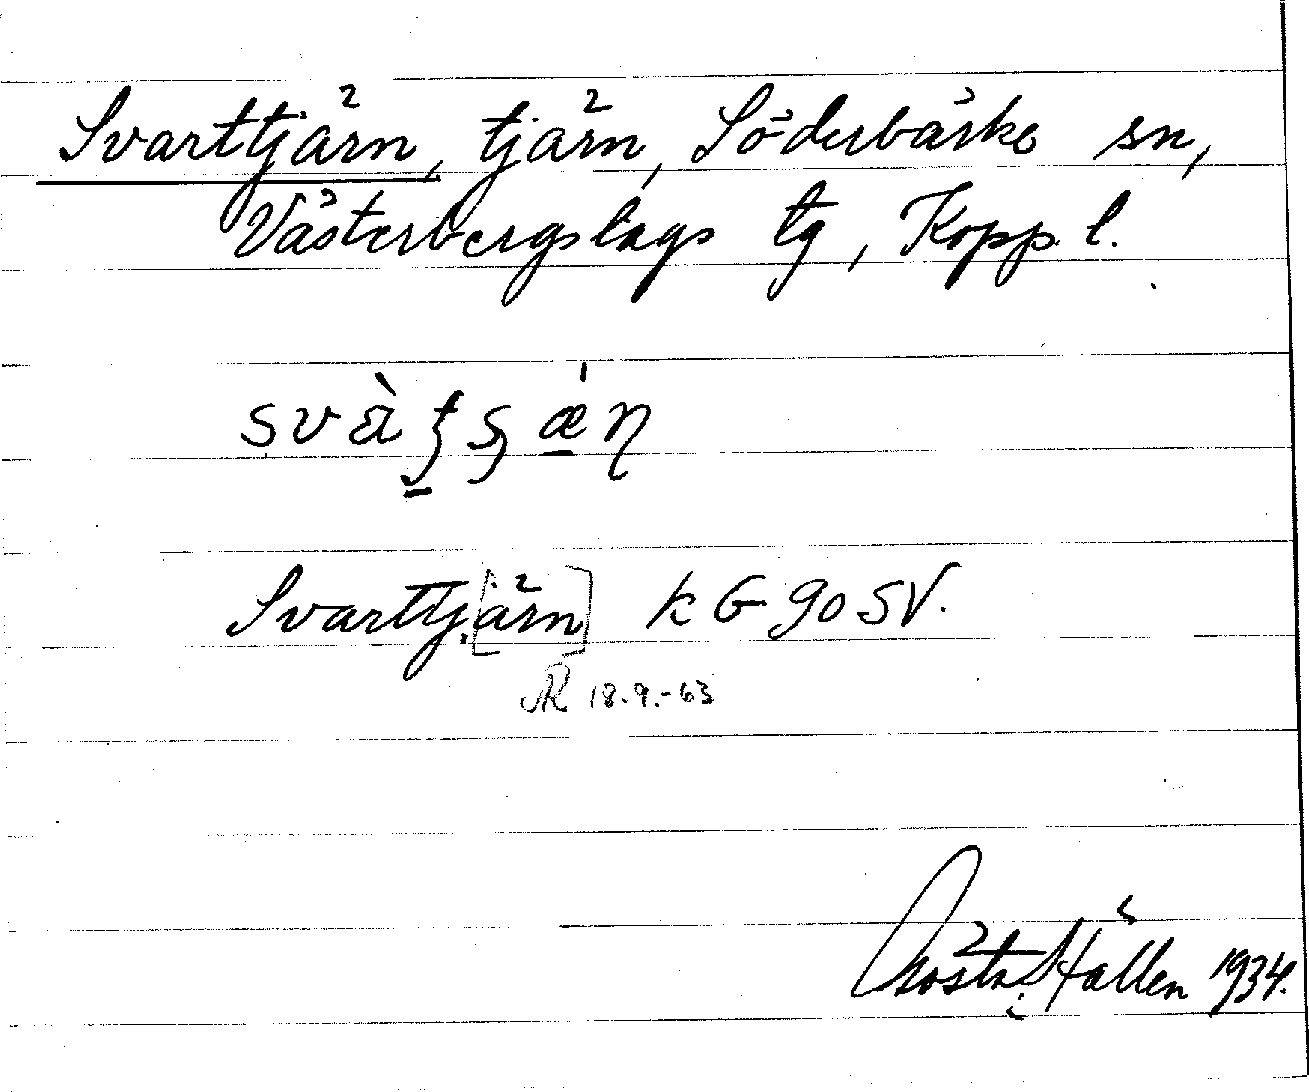 Svarttjärn, tjärn, Söderbärke sn,
Västerbergslags tg, Kopp. l.
Svarttj[ärn] k G 90 SV.
18.9.-63
Gösta Hållen 1934.